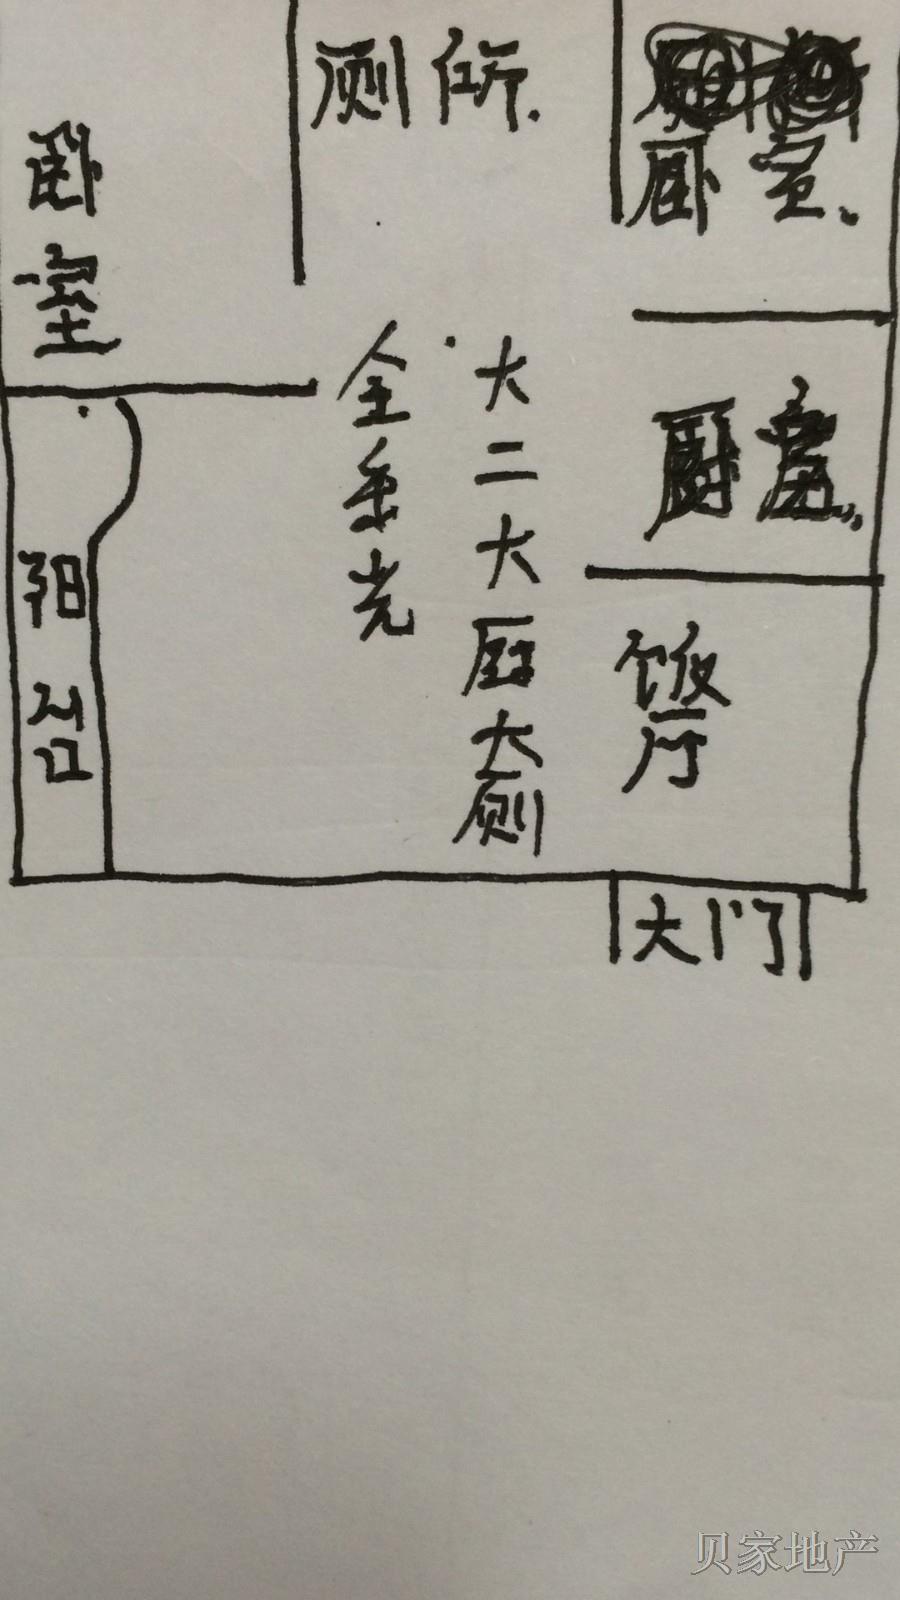 厕所.
卧室
全采光
大二大厨大厕
阳台
饭厅
大门
贝家地产